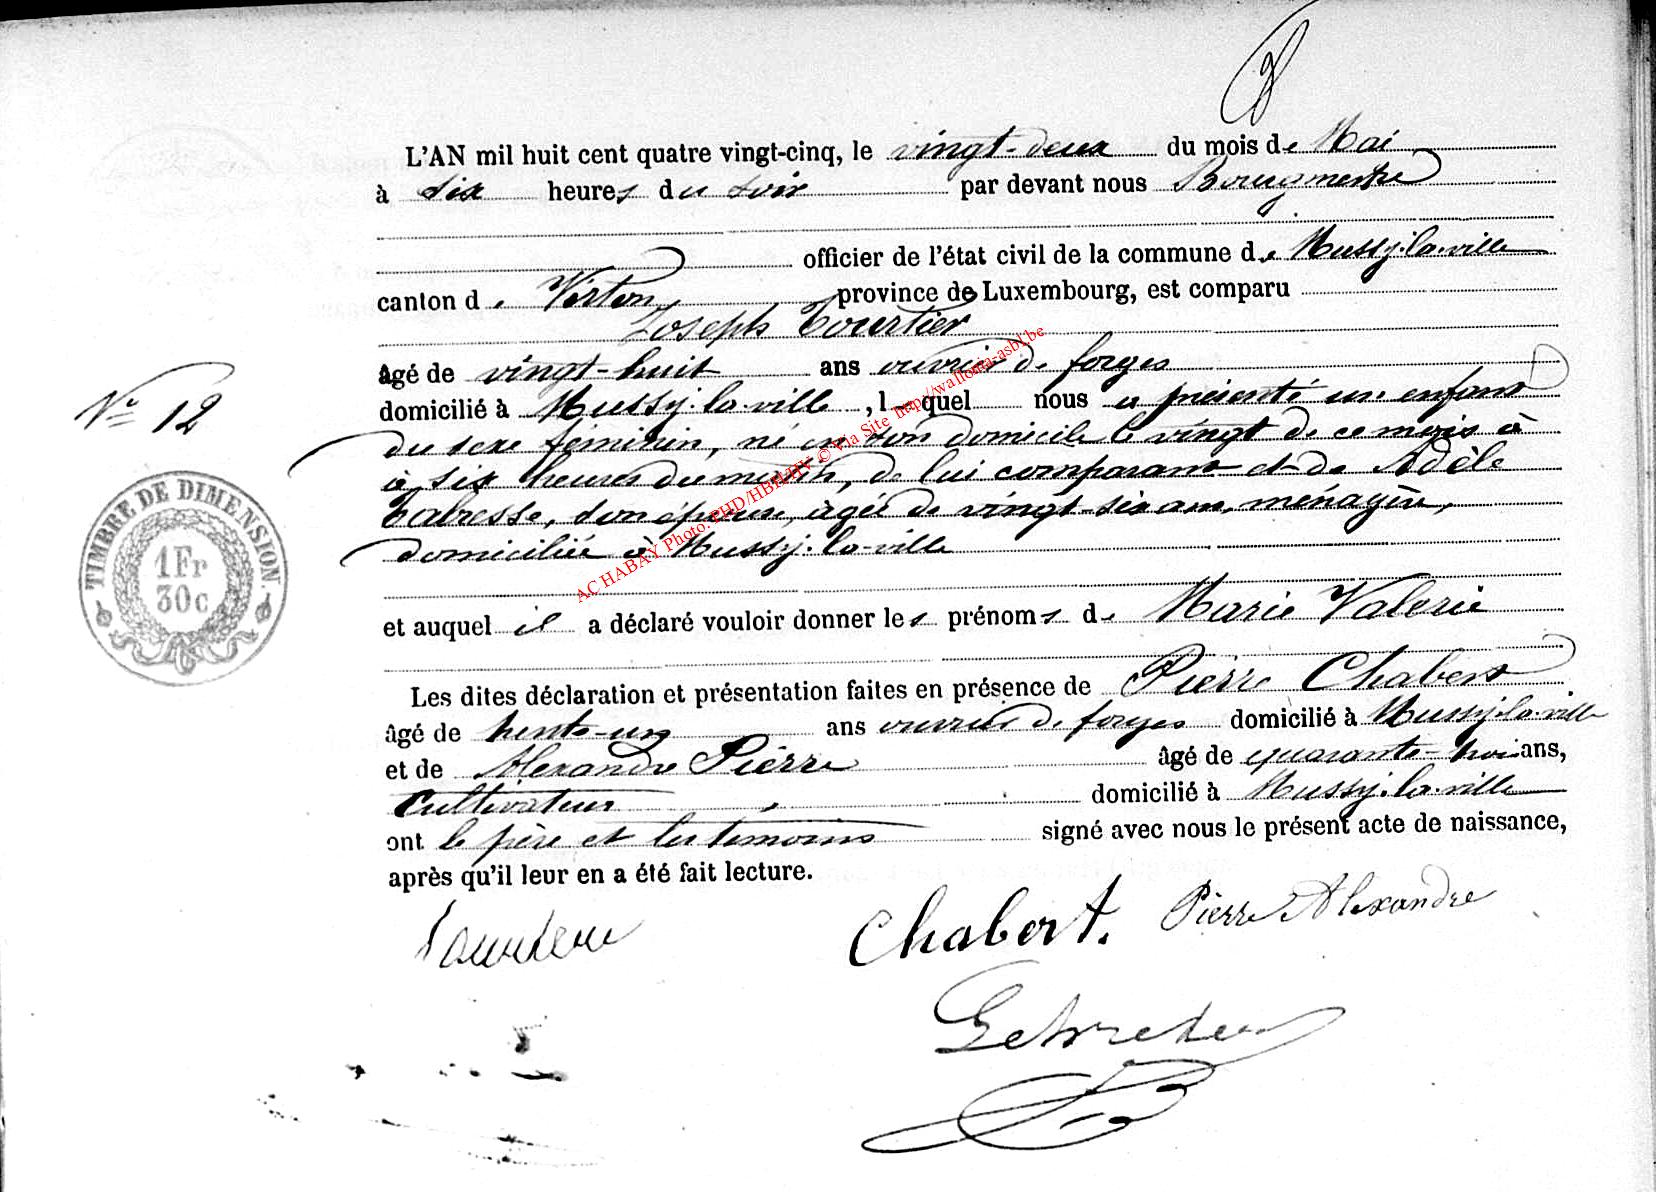 L'AN mil huit cent quatre vingt-cinq, le vingt-deux du mois de Mai
à six heures du soir par devant nous Bourgmestre
officier de l'état civil de la commune de Mussy-la-ville
canton de Virton province de Luxembourg, est comparu
Joseph Tourtier
âgé de vingt-huit ans ouvrier de forges
domicilié à Mussy-la-ville, lequel nous a présenté un enfant
N° 12
du sexe féminin, né en son domicile le vingt de ce mois à
à six heures du matin, de lui comparant et de Adèle
son épouse, âgée de vingt-six ans, ménagère,
domiciliée à Mussy-la-ville
TIMBRE DE DIMENSION.
1Fr
30c
AC HABAY Photo: PHD/HBH/HV © Via Site http://wallonia-asbl.be
et auquel il a déclaré vouloir donner les prénoms de Marie Valerie
Les dites déclaration et présentation faites en présence de Pierre Chabert
âgé de trente-un ans ouvrier de forges domicilié à Mussy-la-ville
et de Alexandre Pierre âgé de quarante-trois ans,
Cultivateur domicilié à Mussy-la-ville
ont le père et les témoins signé avec nous le présent acte de naissance,
après qu'il leur en a été fait lecture.
Chabert. Pierre Alexandre